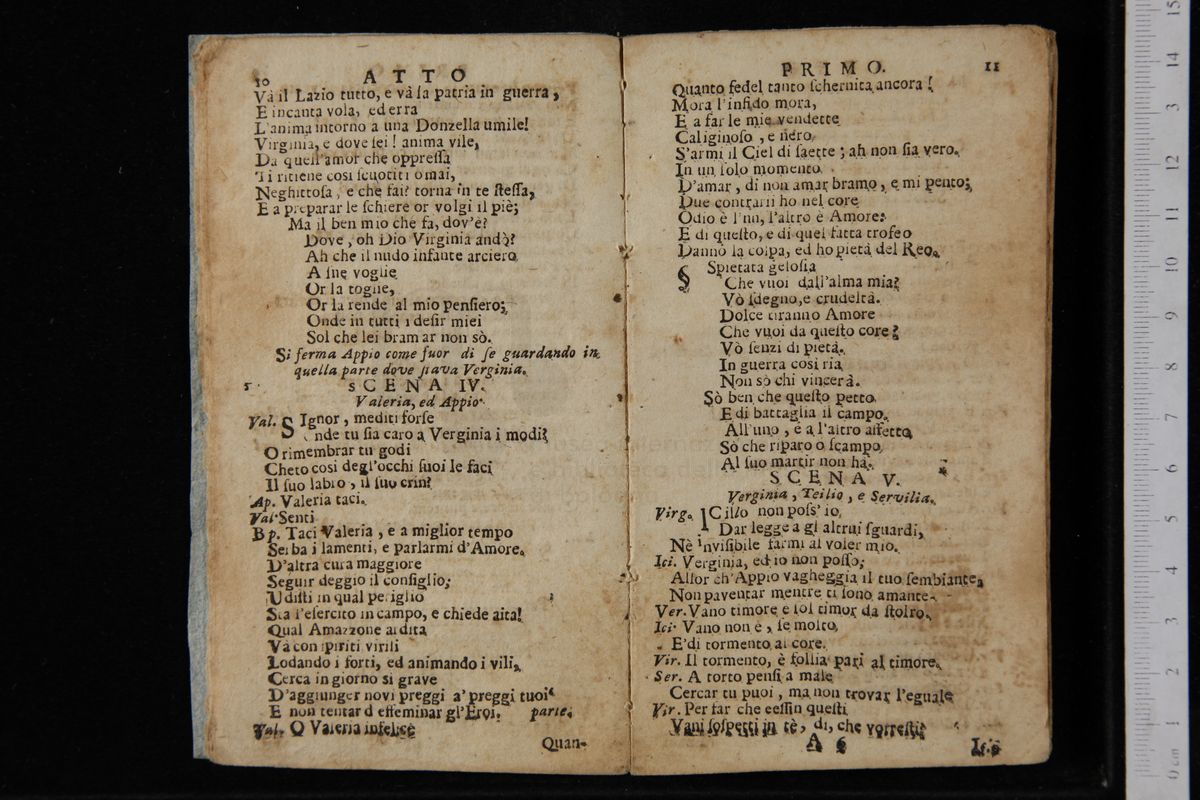 10 ATTO
Và il Lazio tutto, e và la patria in guerra,
E incanta vola, ed erra
L'anima intorno a una Donzella umile!
Virginia, e dove sei! anima vile,
Da quell'amor che oppressa
Ti ritiene cosi scuotiti omai,
Neghittosa, e che fai? torna in te stessa,
E a preparar le schiere or volgi il piè;
Ma il ben mio che fa, dov'è?
Dove, oh Dio Virginia andò?
Ah che il nudo infante arciero
A sue voglie
Or la toglie,
Or la rende al mio pensiero;
Onde in tutti i desir miei
Sol che lei bramar non sò.
Si ferma Appio come fuor di se guardando in
quella parte dove stava Verginia.
SCENA IV.
Valeria, ed Appio.
Val. SIgnor, mediti forse
Onde tu sia caro a Verginia i modi?
O rimembrar tu godi
Cheto cosi degl'occhi suoi le faci
Il suo labio, il suo crin?
Ap. Valeria taci.
Val. Senti
Bp. Taci Valeria, e a miglior tempo
Serba i lamenti, e parlarmi d'Amore.
D'altra cura maggiore
Seguir deggio il consiglio;
Udisti in qual periglio
Sta l'esercito in campo, e chiede aita!
Qual Amazzone ardita
Và con spiriti virili
Lodando i forti, ed animando i vili,
Cerca in giorno si grave
D'aggiunger novi preggi a' preggi tuoi
E non tentar d'effeminar gl'Eroi. parte.
Val. O Valeria infelice
Quan-
PRIMO. 11
Quanto fedel tanto schernita ancora!
Mora l'infido mora,
E a far le mie vendette
Caliginoso, e nero
S'armi il Ciel di saette; ah non sia vero.
In un solo momento
D'amar, di non amar bramo, e mi pento;
Due contrarii ho nel core
Odio è l'un, l'altro è Amore.
E di questo, e di quel fatta trofeo
Danno la colpa, ed ho pietà del Reo.
§ Spietata gelosia
Che vuoi dall'alma mia?
Vò sdegno, e crudeltà.
Dolce tiranno Amore
Che vuoi da questo core?
Vò sensi di pietà.
In guerra cosi ria
Non sò chi vincerà.
Sò ben che questo petto
E di battaglia il campo.
All'uno, e a l'altro affetto
Sò che riparo o scampo
Al suo martir non ha.
SCENA V.
Verginia, Teilio, e Servilia.
Virg. ICillo non poss' io,
Dar legge a gl altrui sguardi,
Nè invisibile farmi al voler mio.
Ici. Verginia, ed io non posso;
Allor ch'Appio vagheggia il tuo sembiante,
Non paventar mentre ti sono amante.
Ver. Vano timore e sol timor da stolto.
Ici. Vano non è, se molto
E' di tormento al core.
Vir. Il tormento, è follia pari al timore.
Ser. A torto pensi a male
Cercar tu puoi, ma non trovar l'eguale
Vir. Per far che cessin questi
Vani sospetti in tè, di, che vorresti?
A 6